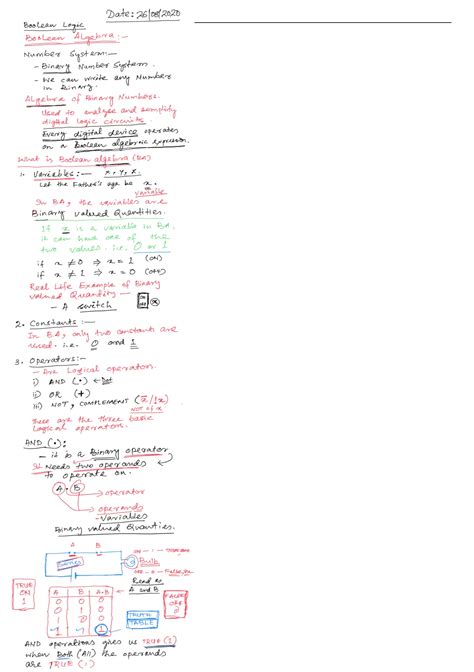 Date: 26/08/2020
Boolean Logic
Boolean Algebra:-
Number System:-
- Binary Number System.
- We can write any Number
in Binary.
Algebra of Binary Numbers.
Used to analyse and simplify
digital logic circuits.
Every digital device operates
on a Boolean algebraic expression.
What is Boolean algebra (BA)
1. Variables:- x, y, z.
Let the Father's age be x.
variable
In BA, the variables are
Binary valued Quantities.
If x is a variable in BA,
it can have one of the
two values. i.e. 0 or 1
if x ≠ 0 ⇒ x = 1 (ON)
if x ≠ 1 ⇒ x = 0 (OFF)
Real Life Example of Binary
valued Quantity
- A switch
ON
OFF
2. Constants:-
In BA, only two constants are
used. i.e. 0 and 1
3. Operators:-
- Are Logical operators.
i) AND (•) ← Dot
ii) OR (+)
iii) NOT, COMPLEMENT (x̄/!x)
NOT of x
These are the three basic
logical operators.
AND (•):
- it is a Binary operator
It Needs two operands
to operate on.
A • B → operator
→ operands
- Variables
Binary valued Quantities.
A B
Switches
Bulb
ON - 1 - True
OFF - 0 - False
Read as
A and B
TRUE
ON
1
A B A·B
0 0 0
0 1 0
1 0 0
1 1 1
FALSE
OFF
0
TRUTH
TABLE
AND operations gives us TRUE (1)
when Both (All) the operands
are TRUE (1)